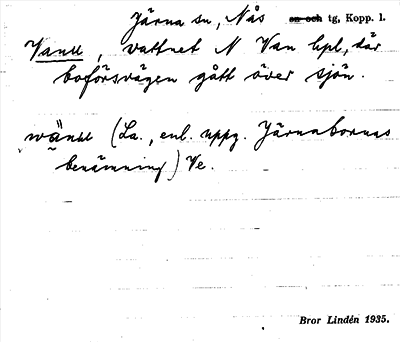 Järna sn, Nås ~~sn och~~ tg, Kopp. l.
Vanu, vattnet N Van hpl, där
boforsvägen gått över sjön.
wä̀nu (La., enl. uppg. Järnabornas
benämning) Ve.
Bror Lindén 1935.